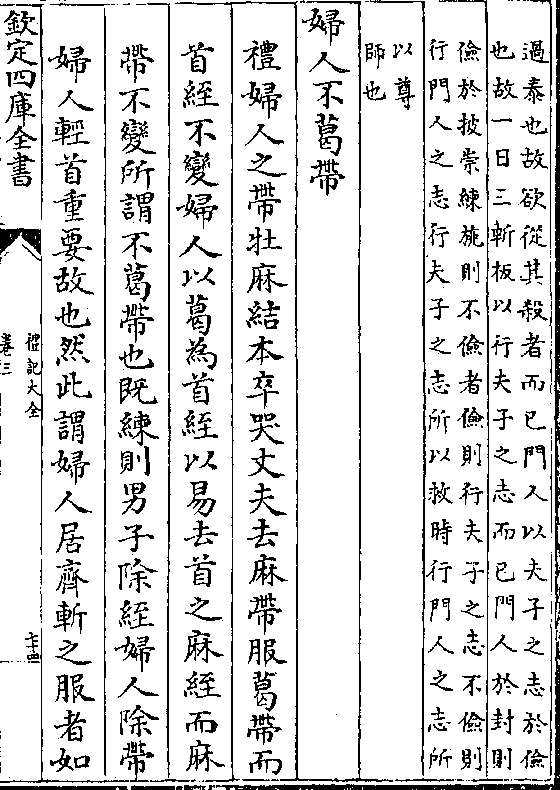 過泰也故欲從其殺者而已門人以夫子之志於儉
也故一日三斬板以行夫子之志而已門人於封則
儉於披崇練旐則不儉者儉則行夫子之志不儉則
行門人之志行夫子之志所以救時行門人之志所
以尊
師也
婦人不葛帶
禮婦人之帶牡麻結本卒哭丈夫去麻帶服葛帶而
首絰不變婦人以葛為首絰以易去首之麻絰而麻
帶不變所謂不葛帶也既練則男子除絰婦人除帶
婦人輕首重要故也然此謂婦人居齊斬之服者如
欽定四庫全書
禮記大全
卷三
七十四